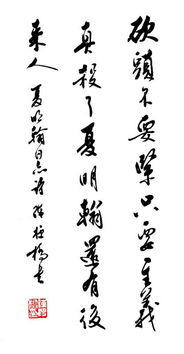 砍頭不要緊只要主義
真殺了夏明翰還有後
来人 夏明翰同志詩